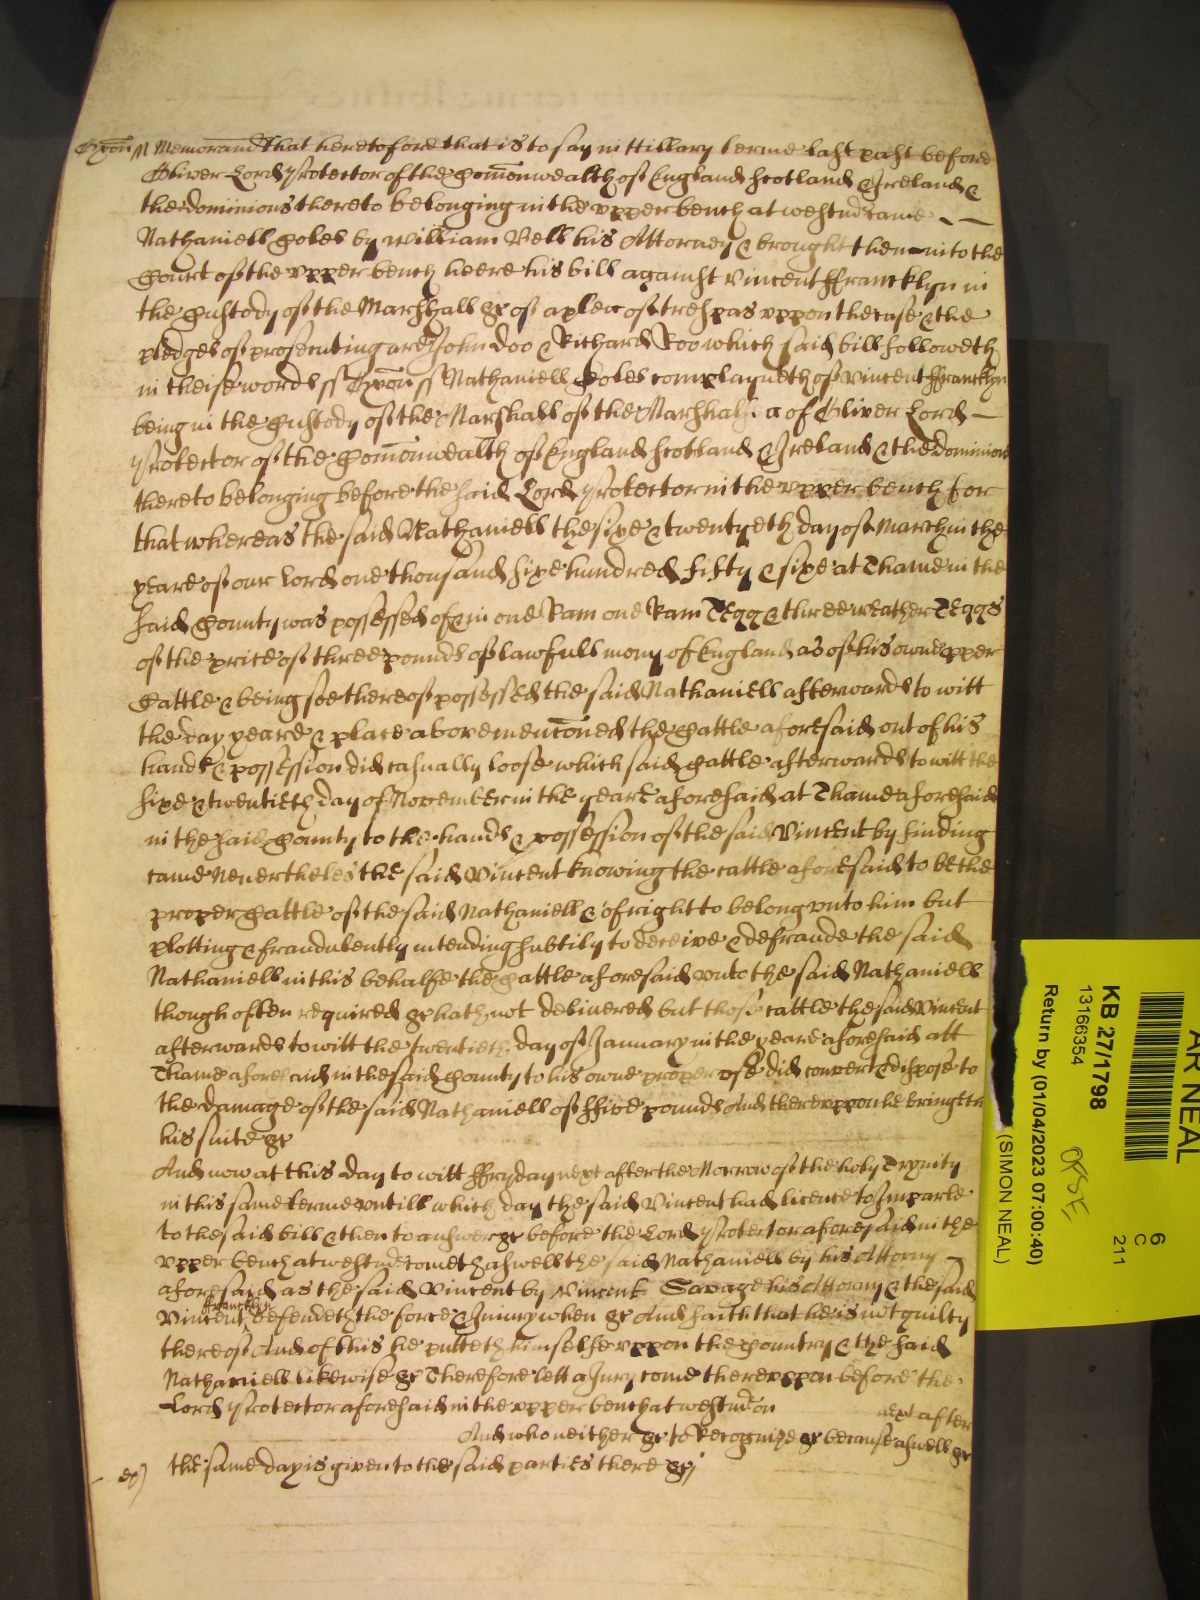 Oxoñ M Memorand That heretofore that is to say in Hillary terme last past before
Oliver Lord Protector of the Com̄onwealth of England Scotland & Ireland &
the dominions thereto belonging in the vpper bench at westmr came
Nathaniell Coles by William Bell his Attorney & brought then into the
Court of the vpper bench heere his bill against Vincent ffrancklyn in
the Custody of the Marshall &c of a plea of trespas vppon the case & the
pledges of prosecuting are John Doo & Richard Roo which said bill followeth
in theise words ss Oxoñ ss Nathaniell Coles complayneth of Vincent ffrancklyn
being in the Custody of the Marshall of the Marshalsea of Oliver Lord
Protector of the Com̄onwealth of England Scotland & Ireland & the dominions
thereto belonging before the said Lord Protector in the vpper bench for
that whereas the said Nathaniell the sixe & twentyeth day of March in the
yeare of our Lord one thousand sixe hundred fifty & sixe at Thame in the
said County was possessed of & in one Ram one Ram Tegg & three weather Teggs
of the price of three pounds of lawfull mony of England as of his owne pper
Cattle & being soe thereof possessed the said Nathaniell afterwards to witt
the day yeare & place abovemenc̄oned the Cattle aforesaid out of his
hands & possession did casually loose which said Cattle afterwards to witt the
sixe & twentieth day of November in the yeare aforesaid at Thame aforesaid
in the said County to the hands & possession of the said Vincent by finding
came Neverthelesse the said Vincent knowing the cattle aforesaid to be the
proper Cattle of the said Nathaniell & of right to belong vnto him but
plotting & fraudulently intending subtily to deceive & defraude the said
Nathaniell in this behalfe the Cattle aforesaid vnto the said Nathaniell
though often required &c hath not delivered but those cattle the said Vincent
afterwards to witt the twentieth day of January in the yeare aforesaid att
Thame aforesaid in the said County to his owne proper vse did convert & dispose to
the damage of the said Nathaniell of ffive pounds And therevppon he bringeth
his suite &c
And now at this day to witt ffryday next after the Morrow of the holy Trynity
in this same terme vntill which day the said Vincent had licence to Imparle
to the said bill & then to answer &c before the Lord Protector aforesaid in the
vpper bench at westmr cometh aswell the said Nathaniell by his Attorny
aforesaid as the said Vincent by Vincent Savage his Attorny & the said
Vincent ffrancklyn defendeth the force & Iniury when &c And saith that he is not guilty
thereof And of this he putteth himselfe vppon the Country & the said
Nathaniell likewise &c Therefore lett a Jury come therevppon before the
Lord Protector aforesaid in the vpper bench at westmr on next after
And who neither &c to Recognize &c because aswell &c
the same day is given to the said parties there &c
AR NEAL
KB 27/1798
13166354
Return by (01/04/2023 07:00:40)
(SIMON NEAL)
6
C
211